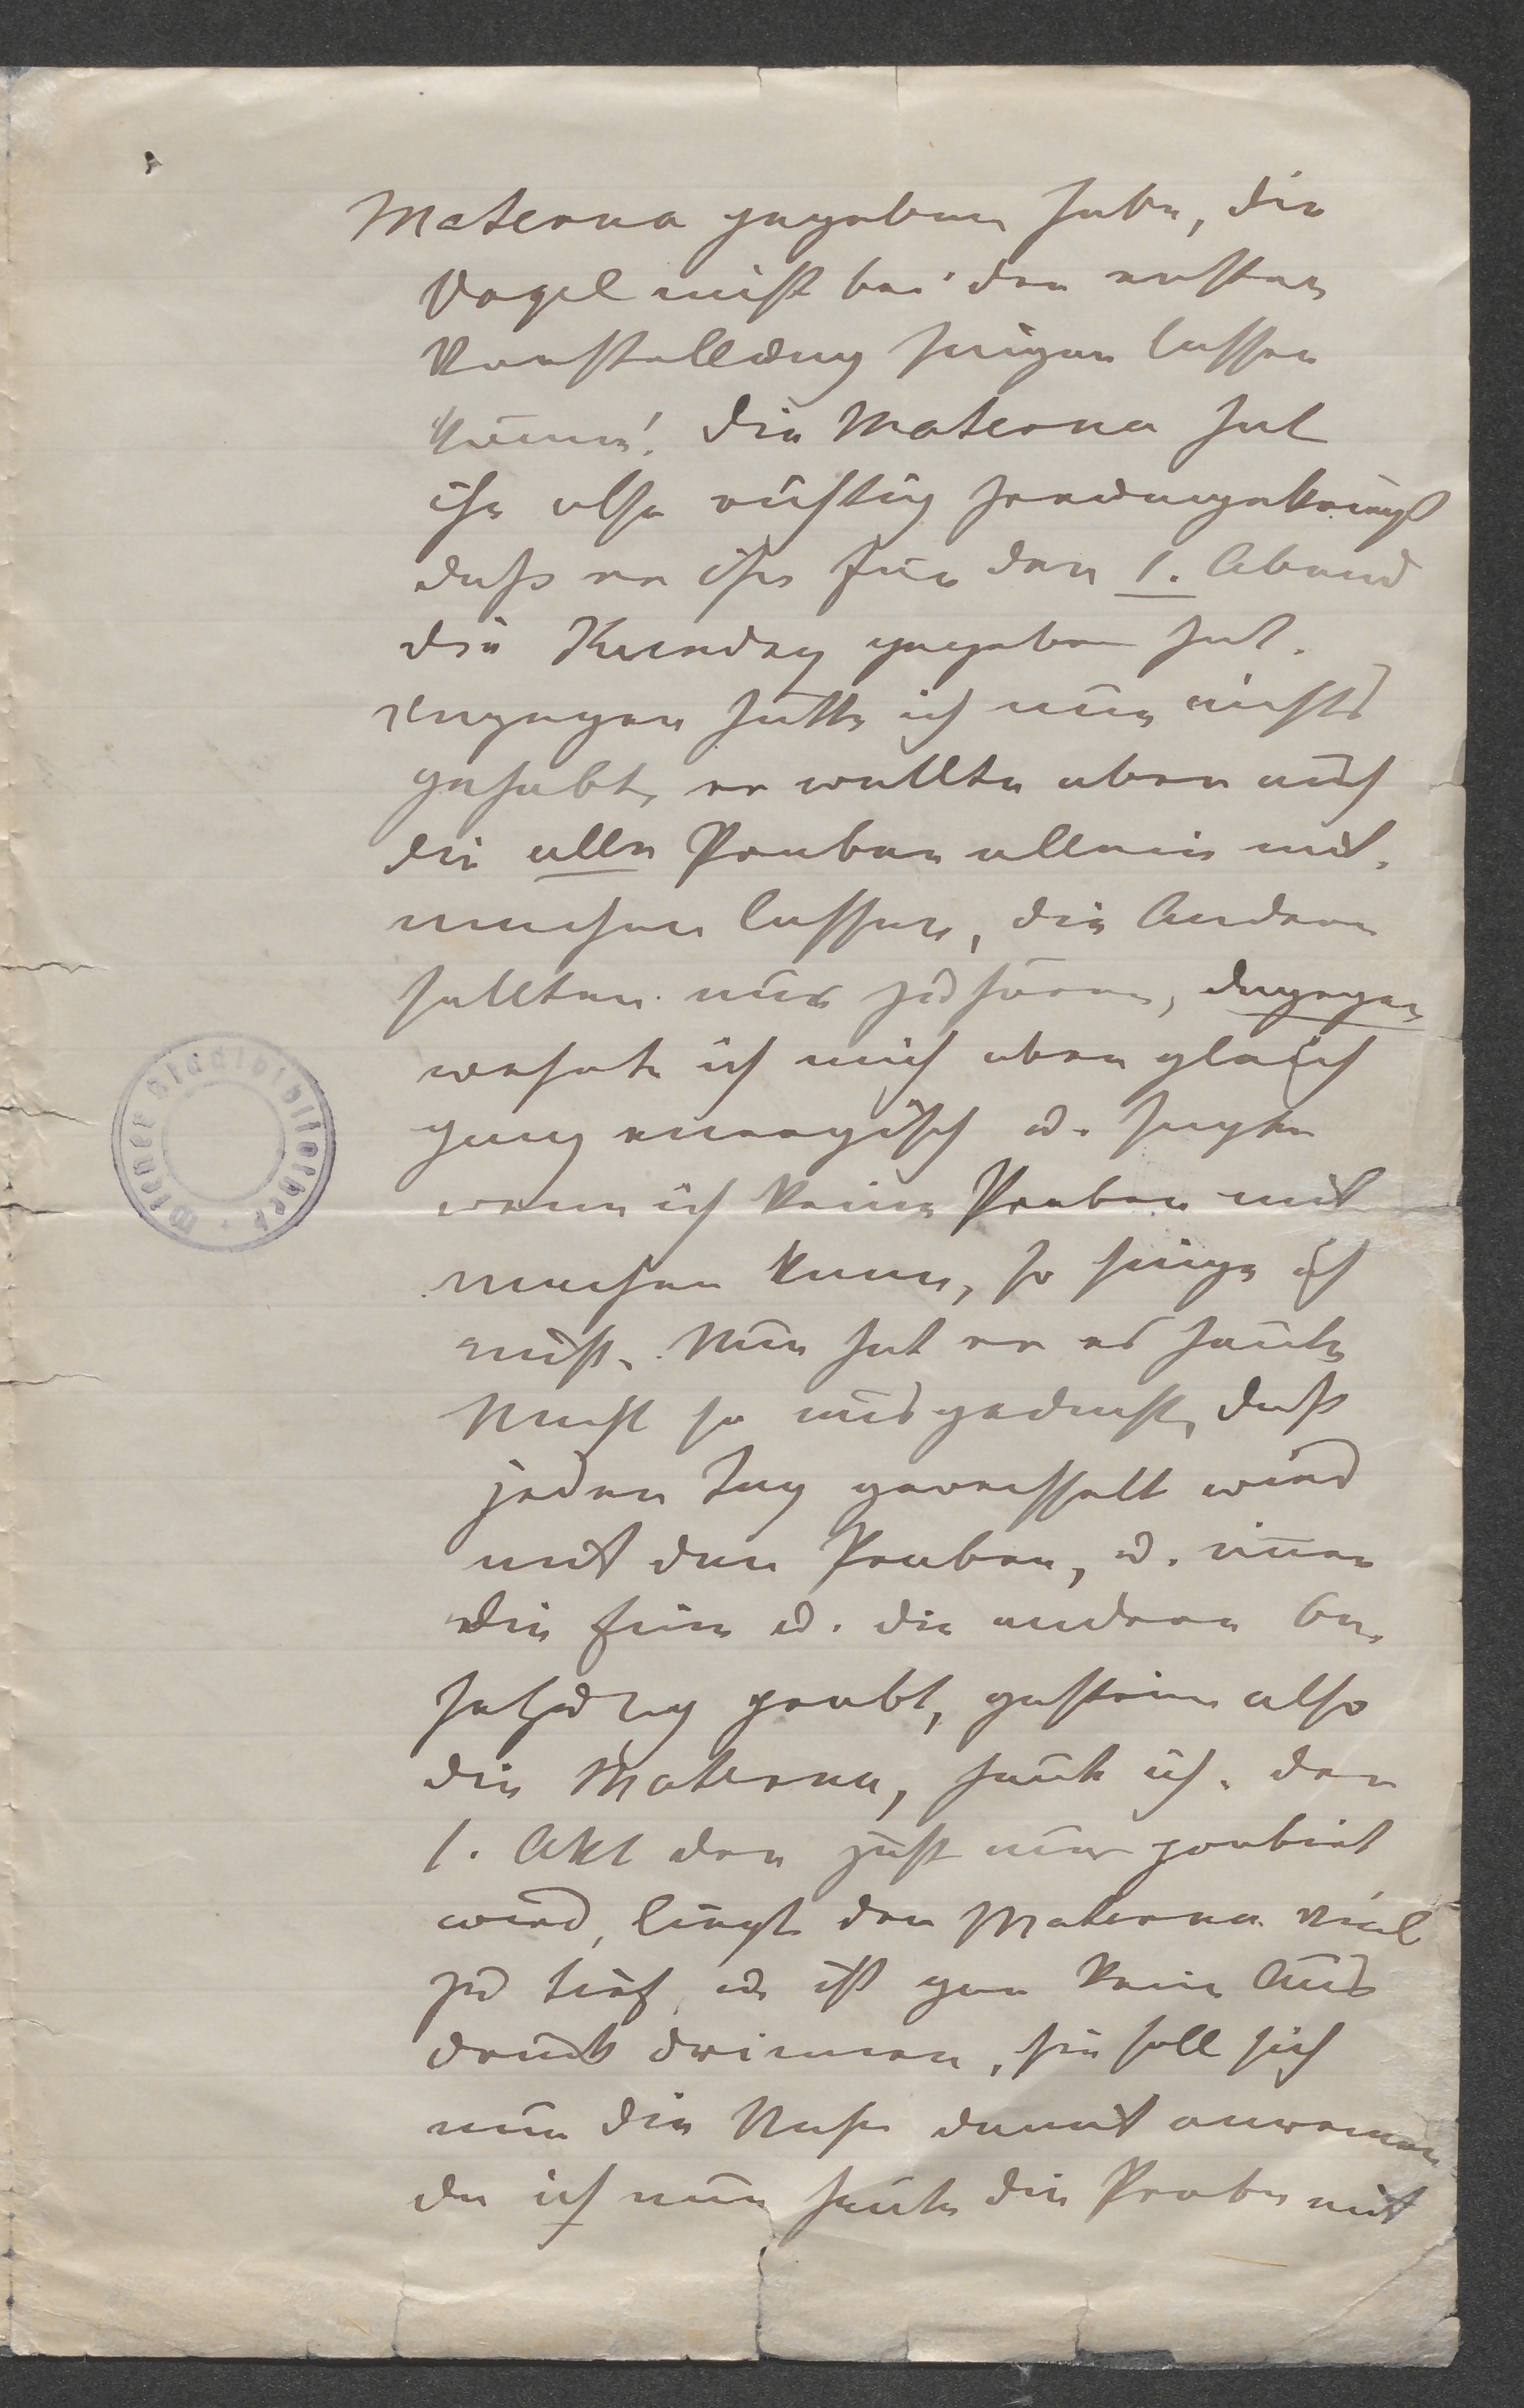 Materna gegeben habe, die
Vogel nicht bei der ersten
Vorstellung singen lassen
könne! die Materna hat
ihn also richtig herumgekriegt
dass er ihr für den 1. Abend
die Kundry gegeben hat.
dagegen hätte ich nun nichts
gehabt, er wollte aber auch
die alle Proben allein mit-
machen lassen, die Andern
sollten nur zuhören, dagegen
wehrte ich mich aber gleich
ganz energisch u. sagte
wenn ich keine Proben mit
machen kann, so singe ich
nicht. Nun hat er es heute
Nacht so ausgedacht, dass
jeden Tag gewechselt wird
mit den Proben, u. immer
die eine u. die andere Be-
setzung probt, gestern also
die Materna, heute ich. der
1. Akt der jetzt nur probirt
wird, liegt der Materna viel
zu tief, es ist gar kein Aus
druck drinnen, sie soll sich
nun die Nase damit
da ich nun heute die Probe mit
Wiener Stadtbibliothek